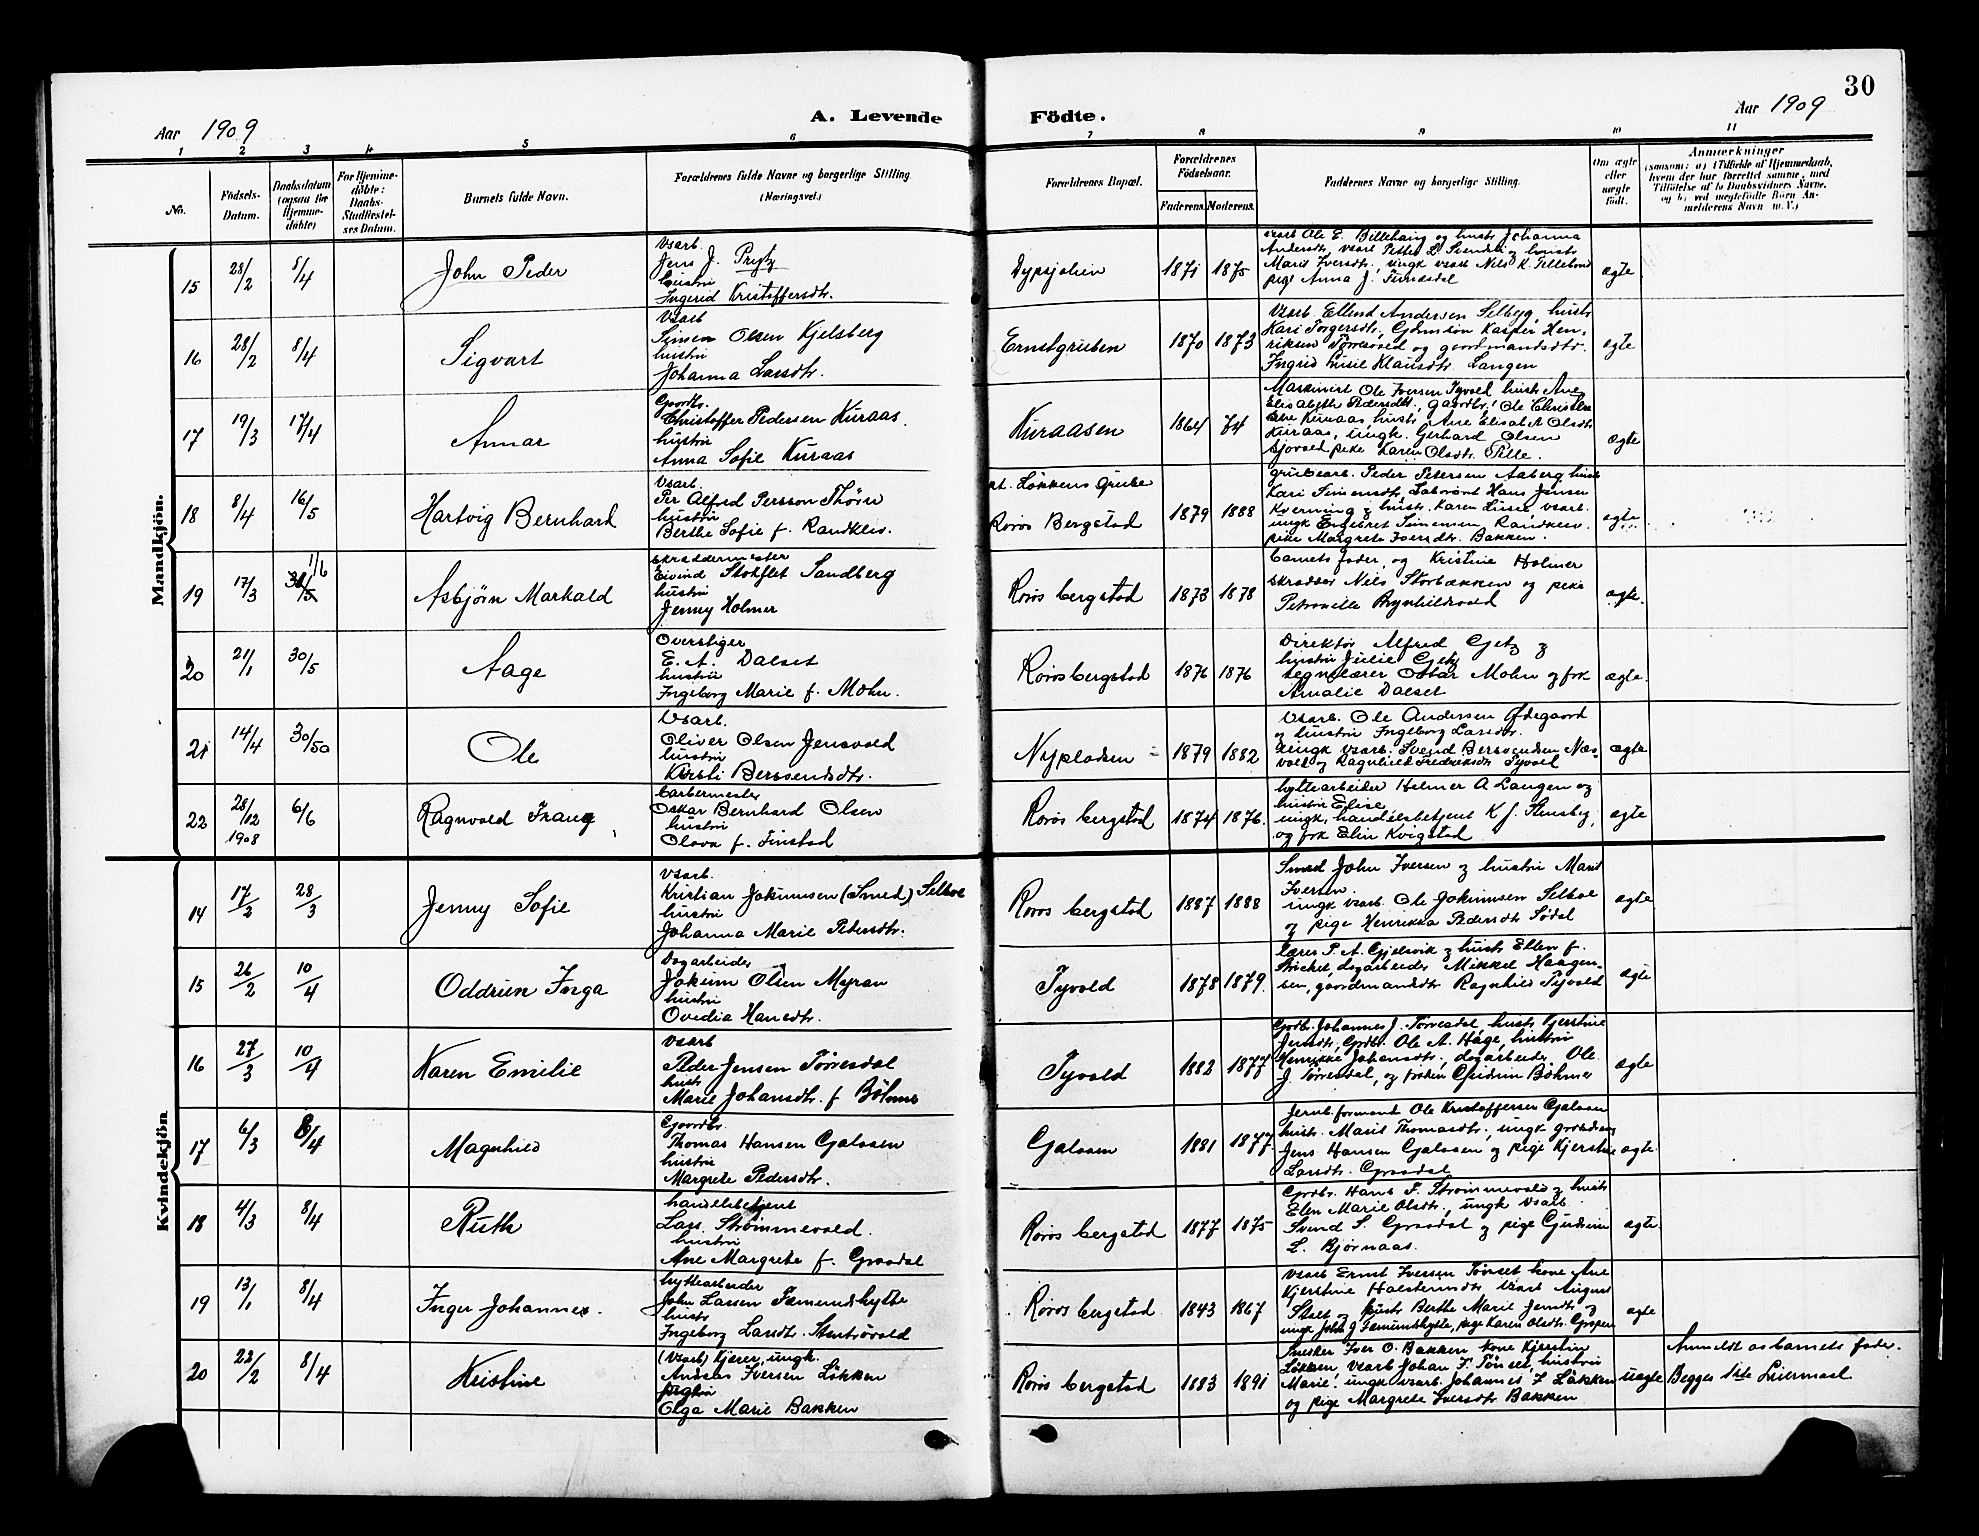 30
Aar 1909
A. Levende Födte.
Aar 1909
1 2 3 4 5 6 7 8 9 10 11
No.
Födsels-Datum.
Daabsdatum (ogsaa for Hjemmedöbte)
For Hjemmedöbte: Daabs-Stadfæstelses Datum.
Barnets fulde Navn.
Forældrenes fulde Navne og borgerlige Stilling. (Næringsvei.)
Forældrenes Bopæl.
Forældrenes Födselsaar.
Faderens. Moderens.
Faddernes Navne og borgerlige Stilling.
Om ægte eller uægte födt.
Anmærkninger
(saasom: a) i Tilfælde af Hjemmedaab, hvem der har forrettet samme, med Tilföielse af to Daabsvidners Navne, og b) ved uægtefödte Börn Anmelderens Navn m. V.)
Mandkjön.
15 28/2 8/4 John Peder
Vsarb.
Jens J. Prytz
hustru
Ingerid Kristoffersdtr.
1871 1875
ægte
16 28/2 8/4 Sigvart
Vsarb
Simen Olsen Kjelsberg
hustru
Johanna Larsdtr.
Ernstgruben 1870 1873
Vsarb. Ellend Andersen
Ingrid Lusie Klausdtr. Langen
ægte
17 19/3 17/4 Annar
Gaardbr.
Christoffer Pedersen Kuraas.
hustru
Anna Sofie Kuraas
Kuraasen 1864 74
Maskinist Ole Iversen Tyvold, hustr. Ane
Elisabeth Pedersdtr., gaardbr. Ole
Kuraas, ungk. Gerhard Olsen
ægte
18 8/4 16/5 Hartvig Bernhard
Vsarb.
Per Alfred Persson Thörn
hustru
Berthe Sofie f.
Løkkens Grube
Røros Bergstad 1879 1888
grubearb. Peder Petersen Aaberg, hust
Kari Simensdtr, Laborant Hans Jensen
pike Margrete Iversdtr. Bakken.
ægte
19 17/3 1/6 Asbjørn Markald
skræddermester
Eivind Stokflet Sandberg
hustru
Jenny Holmer
Røros bergstad 1873 1878
barnets fader, og Kristine Holmer
skrædder Nils Storbækken og pike
Petronille Brynhildsvold
ægte.
20 21/1 30/5 Aage
Overstiger
E. A. Dalset
hustru
Ingeborg Marie f. Mohn.
Rørosbergstad 1876 1876
Direktør Alfred Getz og
hustru Julie Getz
Oskar Mohn og frk
Amalie Dalset
ægte.
21 14/4 30/50 Ole
Vsarb.
Oliver Olsen Jensvold
hustru
Kirsti Berssendsdtr.
Nypladsen 1879 1882
Vsarb. Ole Andersen Ødegaard
og hustru Ingeborg Larsdtr.
ungk vsarb. Svend Berssendsen Næs-
vold og Ragnhild Fredriksdtr Tyvold
ægte
22 28/12 1908 6/6 Ragnvald Frang
barbermester
Oskar Bernhard Olsen
hustru
Olava f. Finstad
Røros bergstad 1874 1876.
hyttearbeider Helmer A Langen og
hustru Elise,
ungk, handelsbetjent K J. Stensby,
og frk Elin Kvigstad
ægte
Kvindekjön
14 17/2 28/3 Jenny Sofie
Vsarb.
Kristian Jokumsen (Smed) Selboe
hustru
Johanna Marie Pedersdtr.
Røros bergstad 1887 1888
Smed John Iversen og hustru Marit
Iversen.
ungk vsarb. Ole Jokumsen Selboe
og pige Henrikka Pedersdtr Sødal
ægte
15 26/2 10/4 Oddrun Inga
Dagarbeider
Jokum Olsen Myran
hustru
Ovedia Hansdtr.
Tyvold 1878 1879.
lærer P. A. Gjelsvik og hustr Ellen f.
dagarbeider Mikkel Haagen-
sen, gaardmandsdtr Ragnhild Tyvold
ægte
16 27/3 10/4 Karen Emilie
Vsarb
Peder Jensen Tørresdal
hustr
Marie Johansdtr. f Bøhmer
Tyvold 1882 1877
Grdbr. Johannes J. Tørresdal, hustr Kjerstine
Jensdtr, Grdbr. Ole A. Hage, hustru
Henrikke Johansdtr., dagarbeider Ole
J. Tørresdal, og frøken Gudrun Bøhmer
ægte
17 6/3 8/4 Magnhild
Gaardbr.
Thomas Hansen Galaaen
hustru
Margrete Pedersdtr.
Galaaen 1881 1877.
Jernb. formand Ole Kristoffersen Galaaen
hustr. Marit Thomasdtr., ungk
Jens Hansen Galaaen og pige Kjerstine
Larsdtr. Graadal
ægte.
18 4/3 8/4 Ruth
handelsbetjent
Lars Strømmevold.
hustru
Ane Margrete f. Graadal
Røros bergstad 1877 1875
Grdbr. Hans P. Strømmevold og hustr
Elen Marie Olsdtr, ungk vsarb.
Svend S. Graadal og pige Gudrun
L. Bjørnaas.
ægte.
19 13/1 8/4 Inger Johanne.
hyttearbeider
John Larsen Fæmundshytte
hustr
Ingeborg Larsdtr. Stentrøvold
Røros bergstad 1843 1867
Vsarb Ernst Iversen Tønset kone Ane
Kjerstine Halstensdtr Vsarb August
Stolt og hustr Berthe Marie Jensdtr og
ungk John J Fæmundshytte, pige Karen Olsdtr.
ægte
20 22/2 8/4 Kristine
(Vsarb) Kjører, ungk.
Andreas Iversen Løkken
pige
Olga Marie Bakken
Røros bergstad 1883 1891
Snekker Iver O. Bakken kone Kjerstine
Løkken, vsarb Johan F. Tønset, hustru
Marie. ungk vsarb. Johannes I Løkken
og pige Margrete Iversdtr Bakken
uægte
Anmeldt av barnets fader.
Begges 1ste Leiermaal